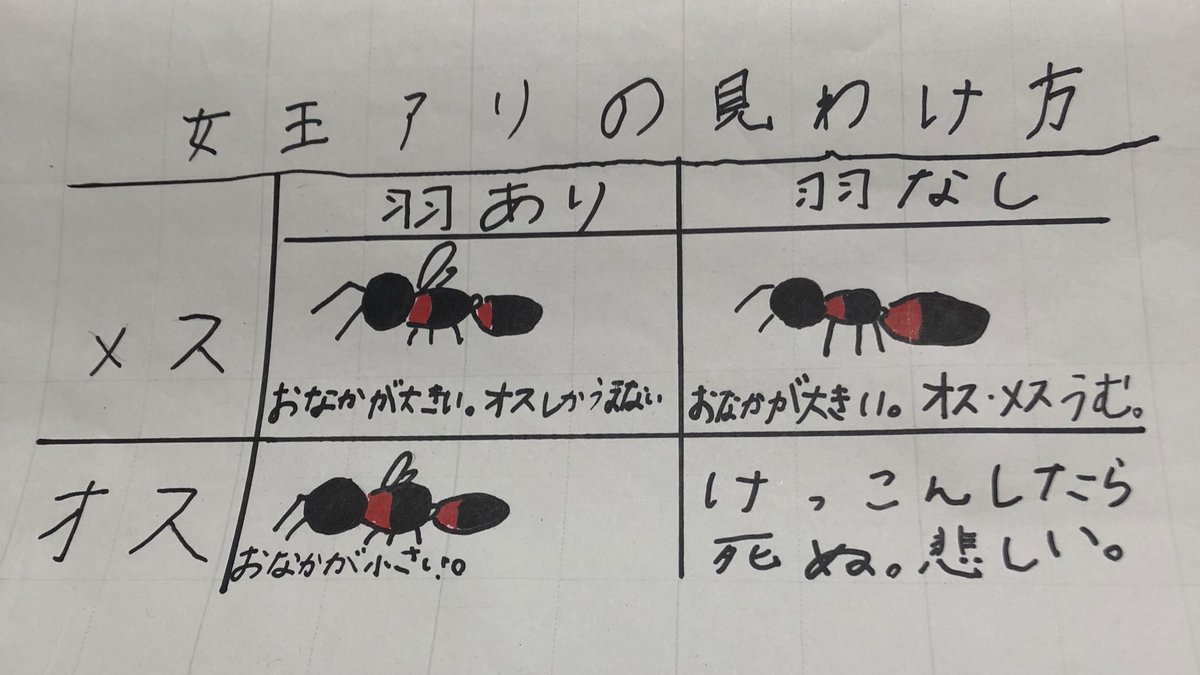 女王アリの見わけ方
羽あり
羽なし
メス
おなかが大きい。オスしかうまない
おなかが大きい。オス・メスうむ。
オス
おなかが小さい。
けっこんしたら
死ぬ。悲しい。